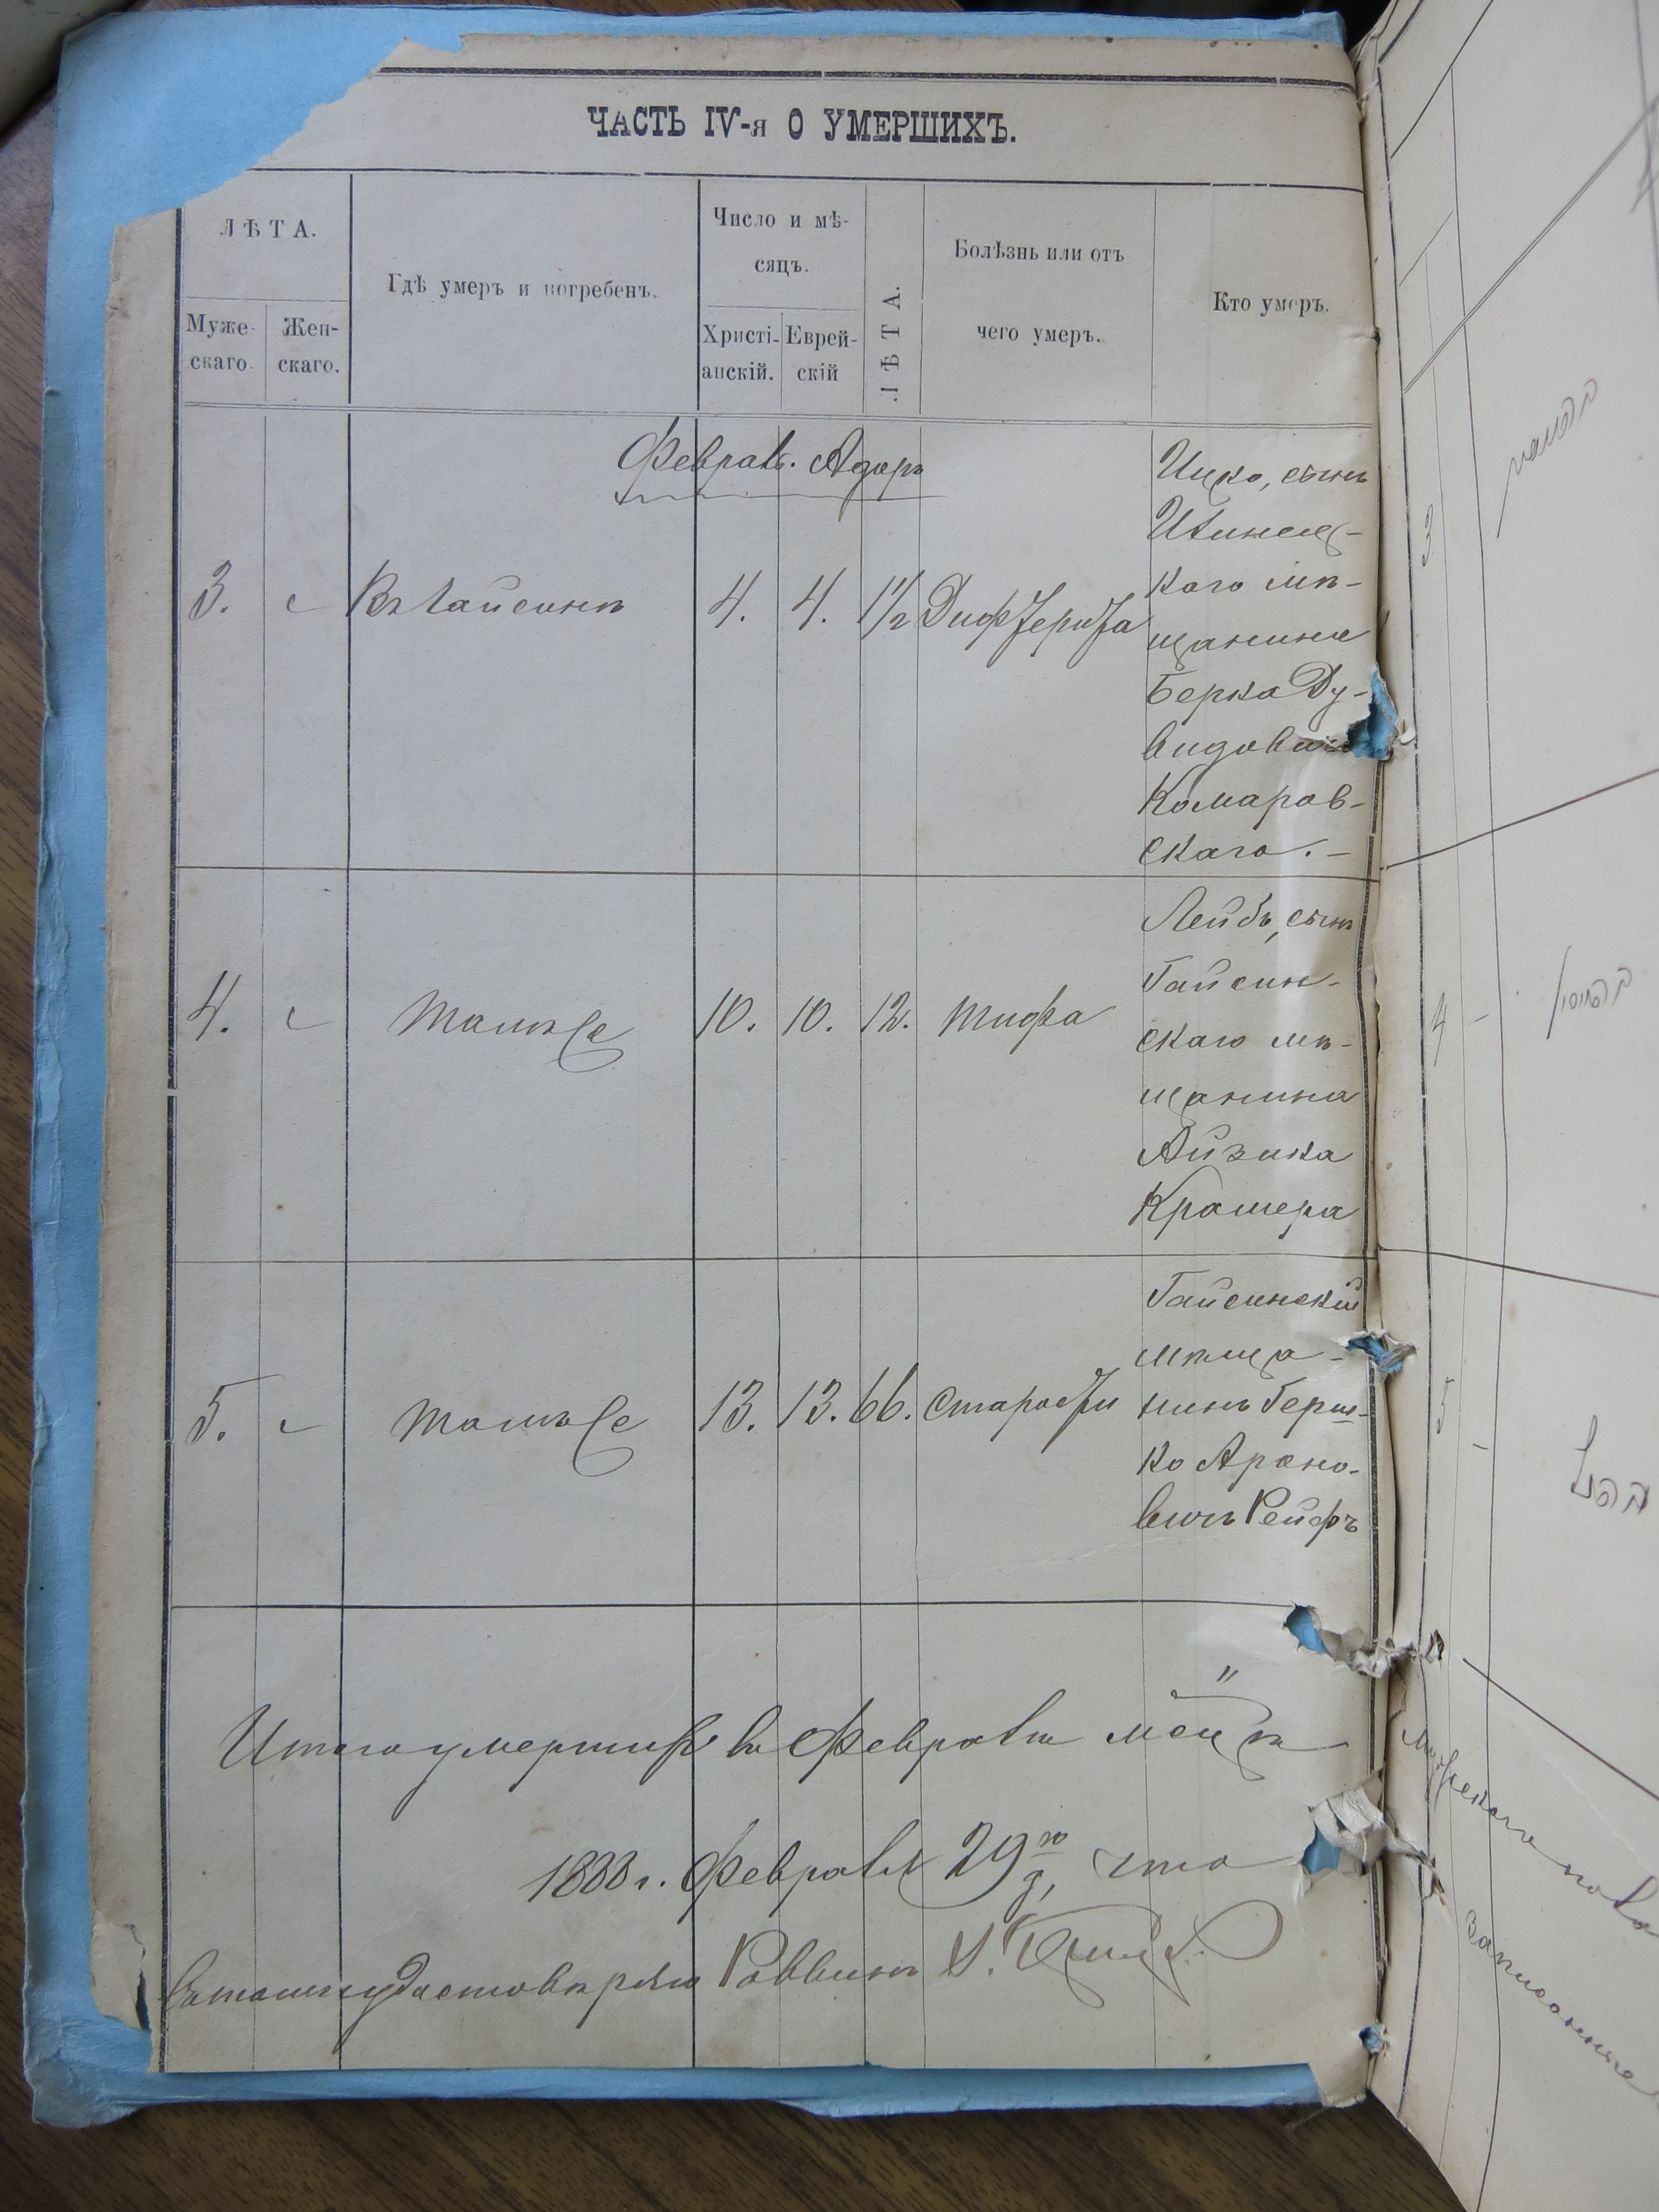 ЧАСТЬ IV-я О УМЕРШИХЪ.
ЛѢТА.
Муже-
скаго.
Жен-
скаго.
Гдѣ умеръ и погребенъ.
Число и мѣ-
сяцъ.
Христі-
анскій.
Еврей-
скій
ЛѢТА.
Болѣзнь или отъ
чего умеръ.
Кто умеръ.
Феврал. Адаръ
3. Въ Гайсинѣ 4. 4. 1½ Дифтерита
Ицко, сынъ
Ильинец-
каго мѣ-
щанина
Берка Ду-
видовича
Комаров-
скаго. –
4. Тамъ же 10. 10. 12. Тифа
Лейбъ, сынъ
Гайсин-
скаго мѣ-
щанина
Айзика
Крамера
5. Тамъ же 13. 13. 66. Старости
Гайсинскій
мѣща-
нинъ Герш-
ко Ароно-
вичъ Рейфъ
Итого умершихъ въ Февралѣ мѣцѣ
1888 г. Февраля 29 го д, что
удостовѣряю Раввинъ
3
4 -
5 -
записанные